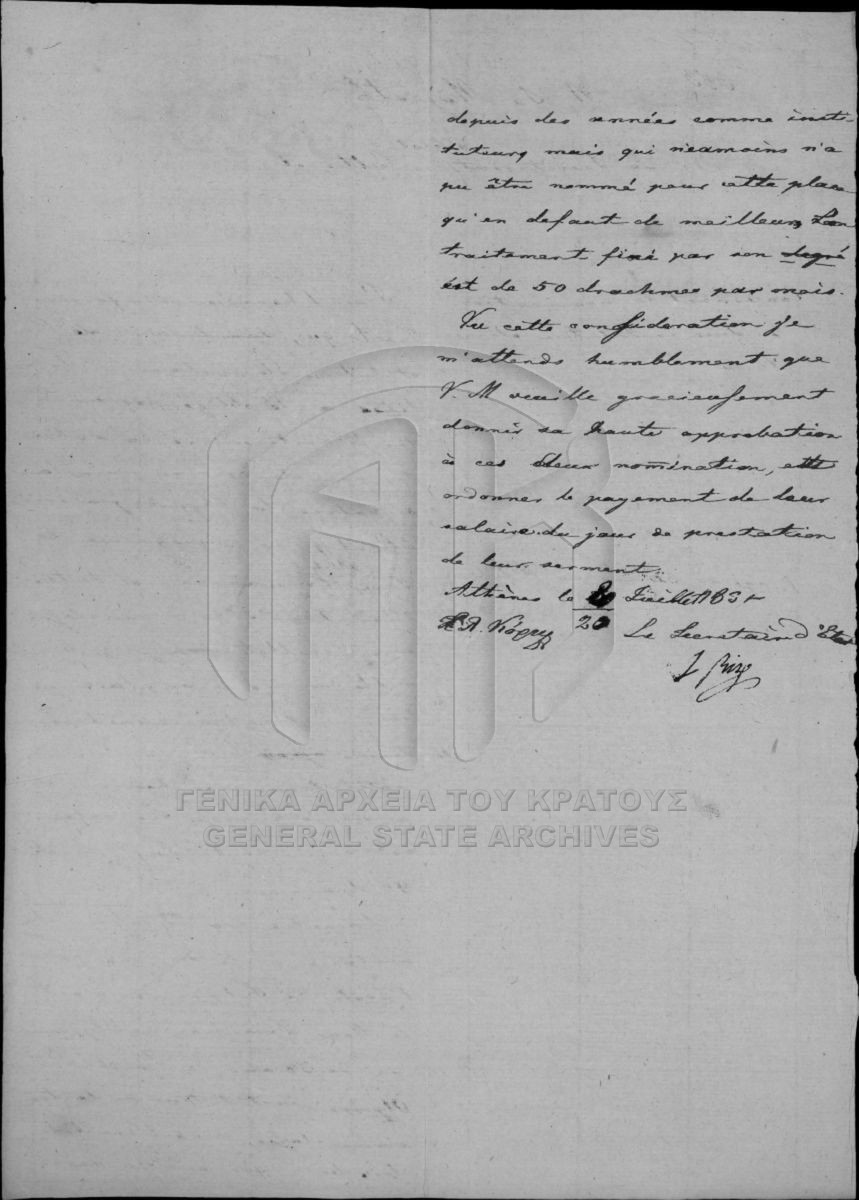 depuis des années comme insti-
tuteurs, mais qui néamoins n'a
pu être nommé pour cette place
qu'en defaut de meilleurs, Son
traitement fixé par son degré
ést de 50 drachmes par mois.
Vu cette consideration je
m'attends humblement que
V. M veuille gracieusement
donnér sa haute approbation
à ces deux nomination, et
ordonner le payement de leur
salaire du jour de prestation
de leur serment.
Athènes le 8/20 Juillet 183
Le Secretaire d'Etat
J Rizo
ΓΕΝΙΚΑ ΑΡΧΕΙΑ ΤΟΥ ΚΡΑΤΟΥΣ
GENERAL STATE ARCHIVES